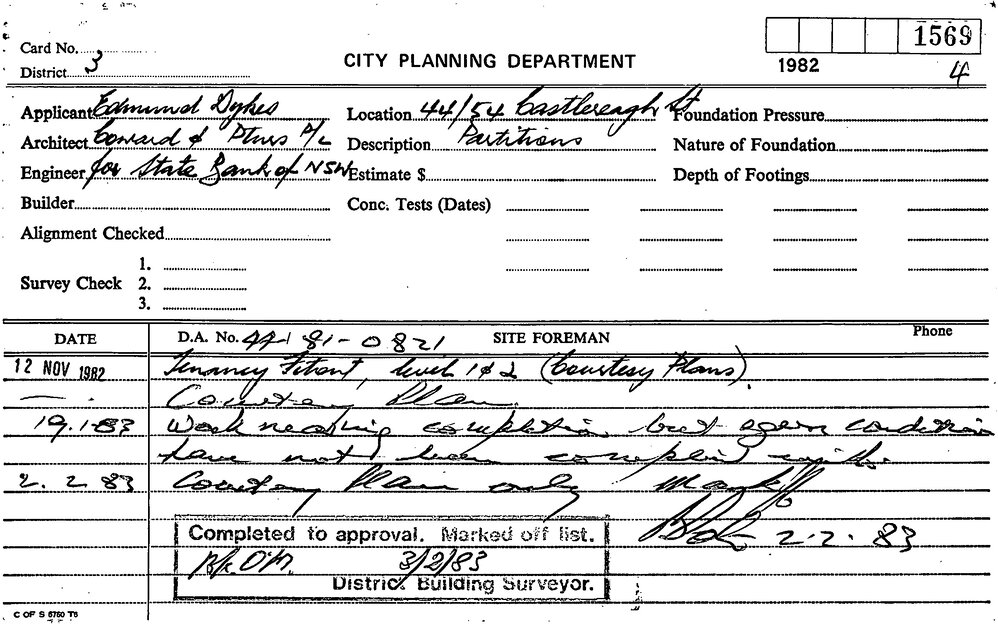 1569
Card No.
District 3
CITY PLANNING DEPARTMENT
1982
4
Applicant Edmund Dykes
Location 44/54 Castlereagh St
Foundation Pressure
Architect Coward & Ptnrs P/L
Description Partitions
Nature of Foundation
Engineer for State Bank of NSW
Estimate $
Depth of Footings
Builder
Conc. Tests (Dates)
Alignment Checked
Survey Check
1.
2.
3.
DATE
D.A. No. 44-81-0821
SITE FOREMAN
Phone
12 NOV 1982
Tenancy Fitout, level 1 & 2 (Courtesy Plans).
Courtesy Plan.
19.1.83 Work nearing completion but condition
have not been complied with.
2.2.83 Courtesy Plan only
2.2.83
Completed to approval. Marked off list.
3/2/83
District Building Surveyor.
C OF S 6760 T6